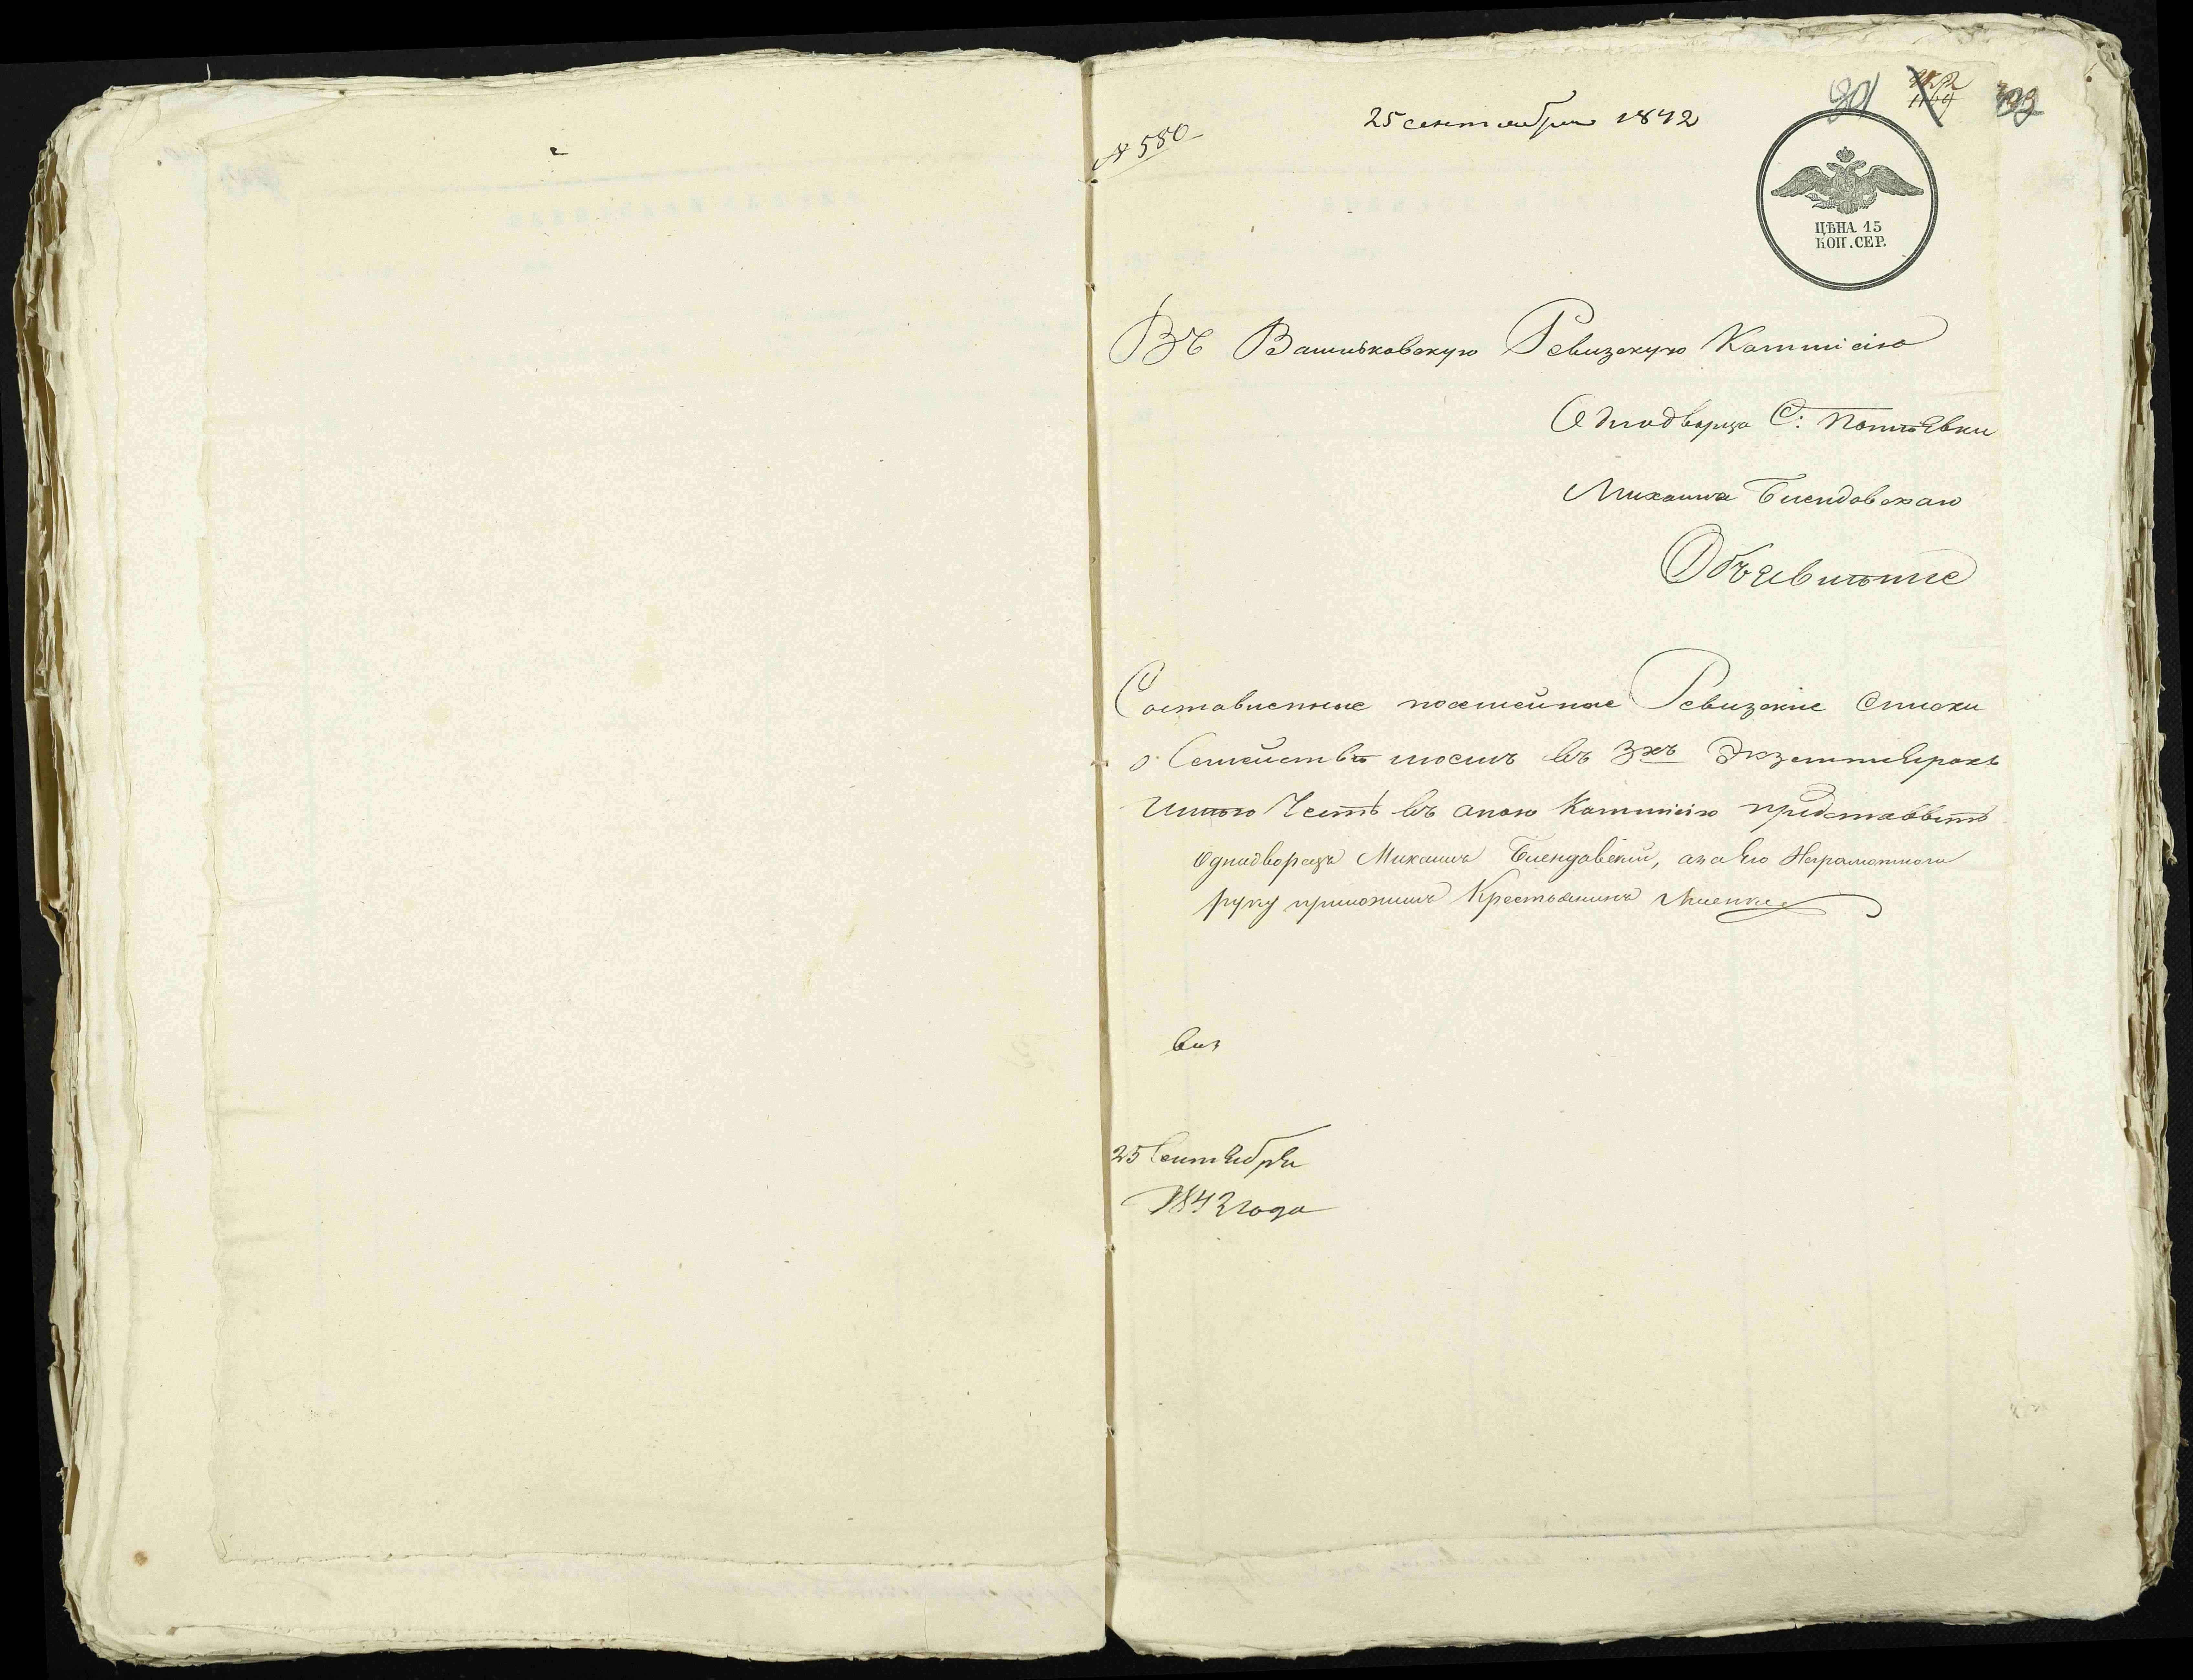 № 580
25 сентября 1842
ЦѢНА 15
КОП. СЕР.
Въ Васильковскую Ревизскую Коммисію
Однодворца С:
Михаила Биендовскаго
Объявленіе
Составленные посемейные Ревизскіе списки
о Семействѣ моемъ въ 3хъ Экземплярахъ
имѣю Честь въ оную Коммисію представить
Однодворецъ Михаилъ Биендовскій, а за его Неграмотного
руку приложилъ Крестьянинъ
25 Сентября
1842 года